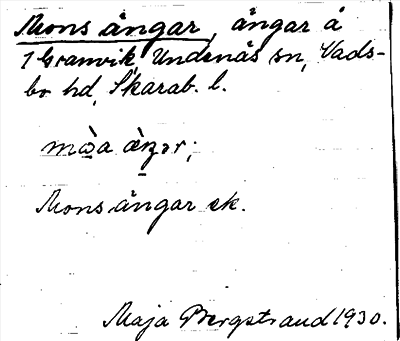 Mons ängar, ängar å
1 Granvik, Undenäs sn, Vads-
bo hd, Skarab. l.
Mons ängar ek.
Maja Bergstrand 1930.